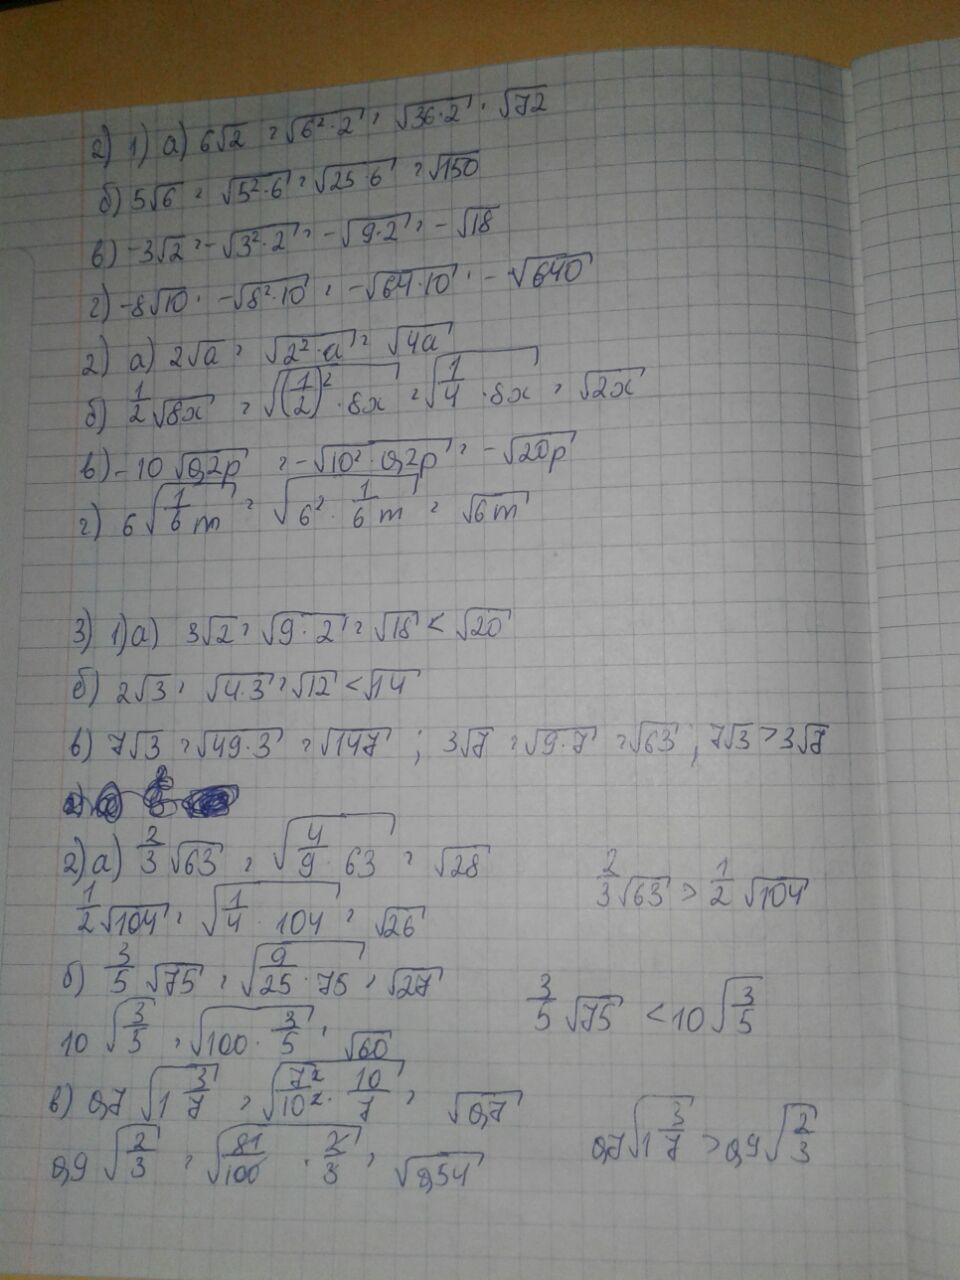 2) 1) а) 6√2 = √(6²·2) = √(36·2) = √72
б) 5√6 = √(5²·6) = √(25·6) = √150
в) -3√2 = -√(3²·2) = -√(9·2) = -√18
г) -8√10 = -√(8²·10) = -√(64·10) = -√640
2) а) 2√a = √(2²·a) = √(4a)
б) 1/2 √(8x) = √((1/2)²·8x) = √(1/4·8x) = √(2x)
в) -10√(0,2p) = -√(10²·0,2p) = -√(20p)
г) 6√(1/6 m) = √(6²·1/6 m) = √(6m)
3) 1) а) 3√2 = √(9·2) = √18 < √20
б) 2√3 = √(4·3) = √12 < √14
в) 7√3 = √(49·3) = √147 ; 3√7 = √(9·7) = √63 ; 7√3 > 3√7
2) а) 2/3 √63 = √(4/9·63) = √28
2/3 √63 > 1/2 √104
1/2 √104 = √(1/4·104) = √26
б) 3/5 √75 = √(9/25·75) = √27
3/5 √75 < 10√(3/5)
10√(3/5) = √(100·3/5) = √60
в) 0,7√(1 3/7) = √(7²/10²·10/7) = √(0,7)
0,7√(1 3/7) > 0,9√(2/3)
0,9√(2/3) = √(81/100·2/3) = √(0,54)